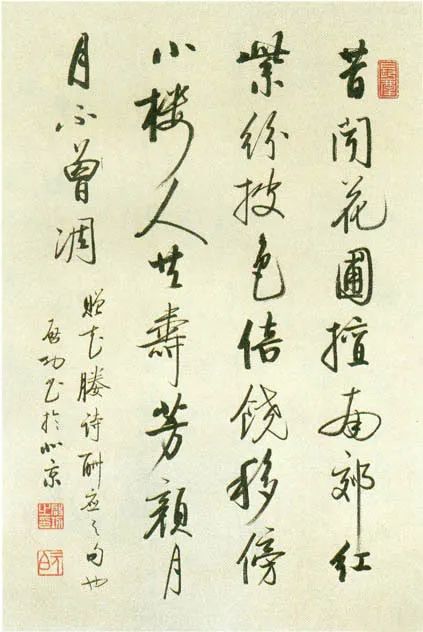 昔聞花圃擅南郊紅
紫紛披色倍饒移傍
小樓人共壽芳顏月
月不曾凋
贈花媵詩酬應之句也
啟功書於北京